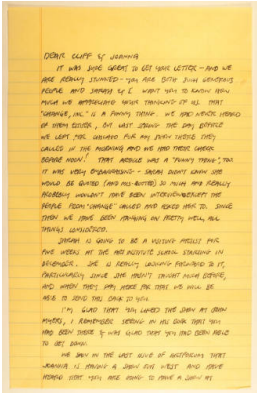 DEAR CLIFF & JOANNA
IT WAS SURE GREAT TO GET YOUR LETTER - AND WE
ARE REALLY STUNNED - YOU ARE BOTH SUCH GENEROUS
PEOPLE AND SARAH & I WANT YOU TO KNOW HOW
MUCH WE APPRECIATE YOUR THINKING OF US. THAT
"CHANGE, INC." IS A FUNNY THING. WE HAD NEVER HEARD
OF THEM EITHER, BUT LAST SPRING THE DAY BEFORE
WE LEFT FOR CHICAGO FOR MY SHOW THERE THEY
CALLED IN THE MORNING AND WE HAD THEIR CHECK
BEFORE NOON! THAT ARTICLE WAS A "FUNNY THING", TOO
IT WAS VERY EMBARRASSING - SARAH DIDN'T KNOW SHE
WOULD BE QUOTED (AND MIS-QUOTED) SO MUCH AND REALLY
PROBABLY WOULDN'T HAVE BEEN INTERVIEWED EXCEPT THE
PEOPLE FROM "CHANGE" CALLED AND ASKED HER TO. SINCE
THEN WE HAVE BEEN HANGING ON PRETTY WELL, ALL
THINGS CONSIDERED.
SARAH IS GOING TO BE A VISITING ARTIST FOR
FIVE WEEKS AT THE ART INSTITUTE SCHOOL STARTING IN
DECEMBER. SHE IS REALLY LOOKING FORWARD TO IT,
PARTICULARLY SINCE SHE HASN'T TAUGHT MUCH BEFORE,
AND WHEN THEY PAY HERE FOR THAT WE WILL BE
ABLE TO SEND THIS BACK TO YOU.
I'M GLAD THAT YOU LIKED THE SHOW AT
MYERS, I REMEMBER SEEING IN HIS BOOK THAT YOU
HAD BEEN THERE & WAS GLAD THAT YOU HAD BEEN ABLE
TO GET DOWN.
WE SAW IN THE LAST ISSUE OF ARTFORUM THAT
JOANNA IS HAVING A SHOW WEST AND HAVE
HEARD THAT YOU ARE GOING TO HAVE A SHOW AT